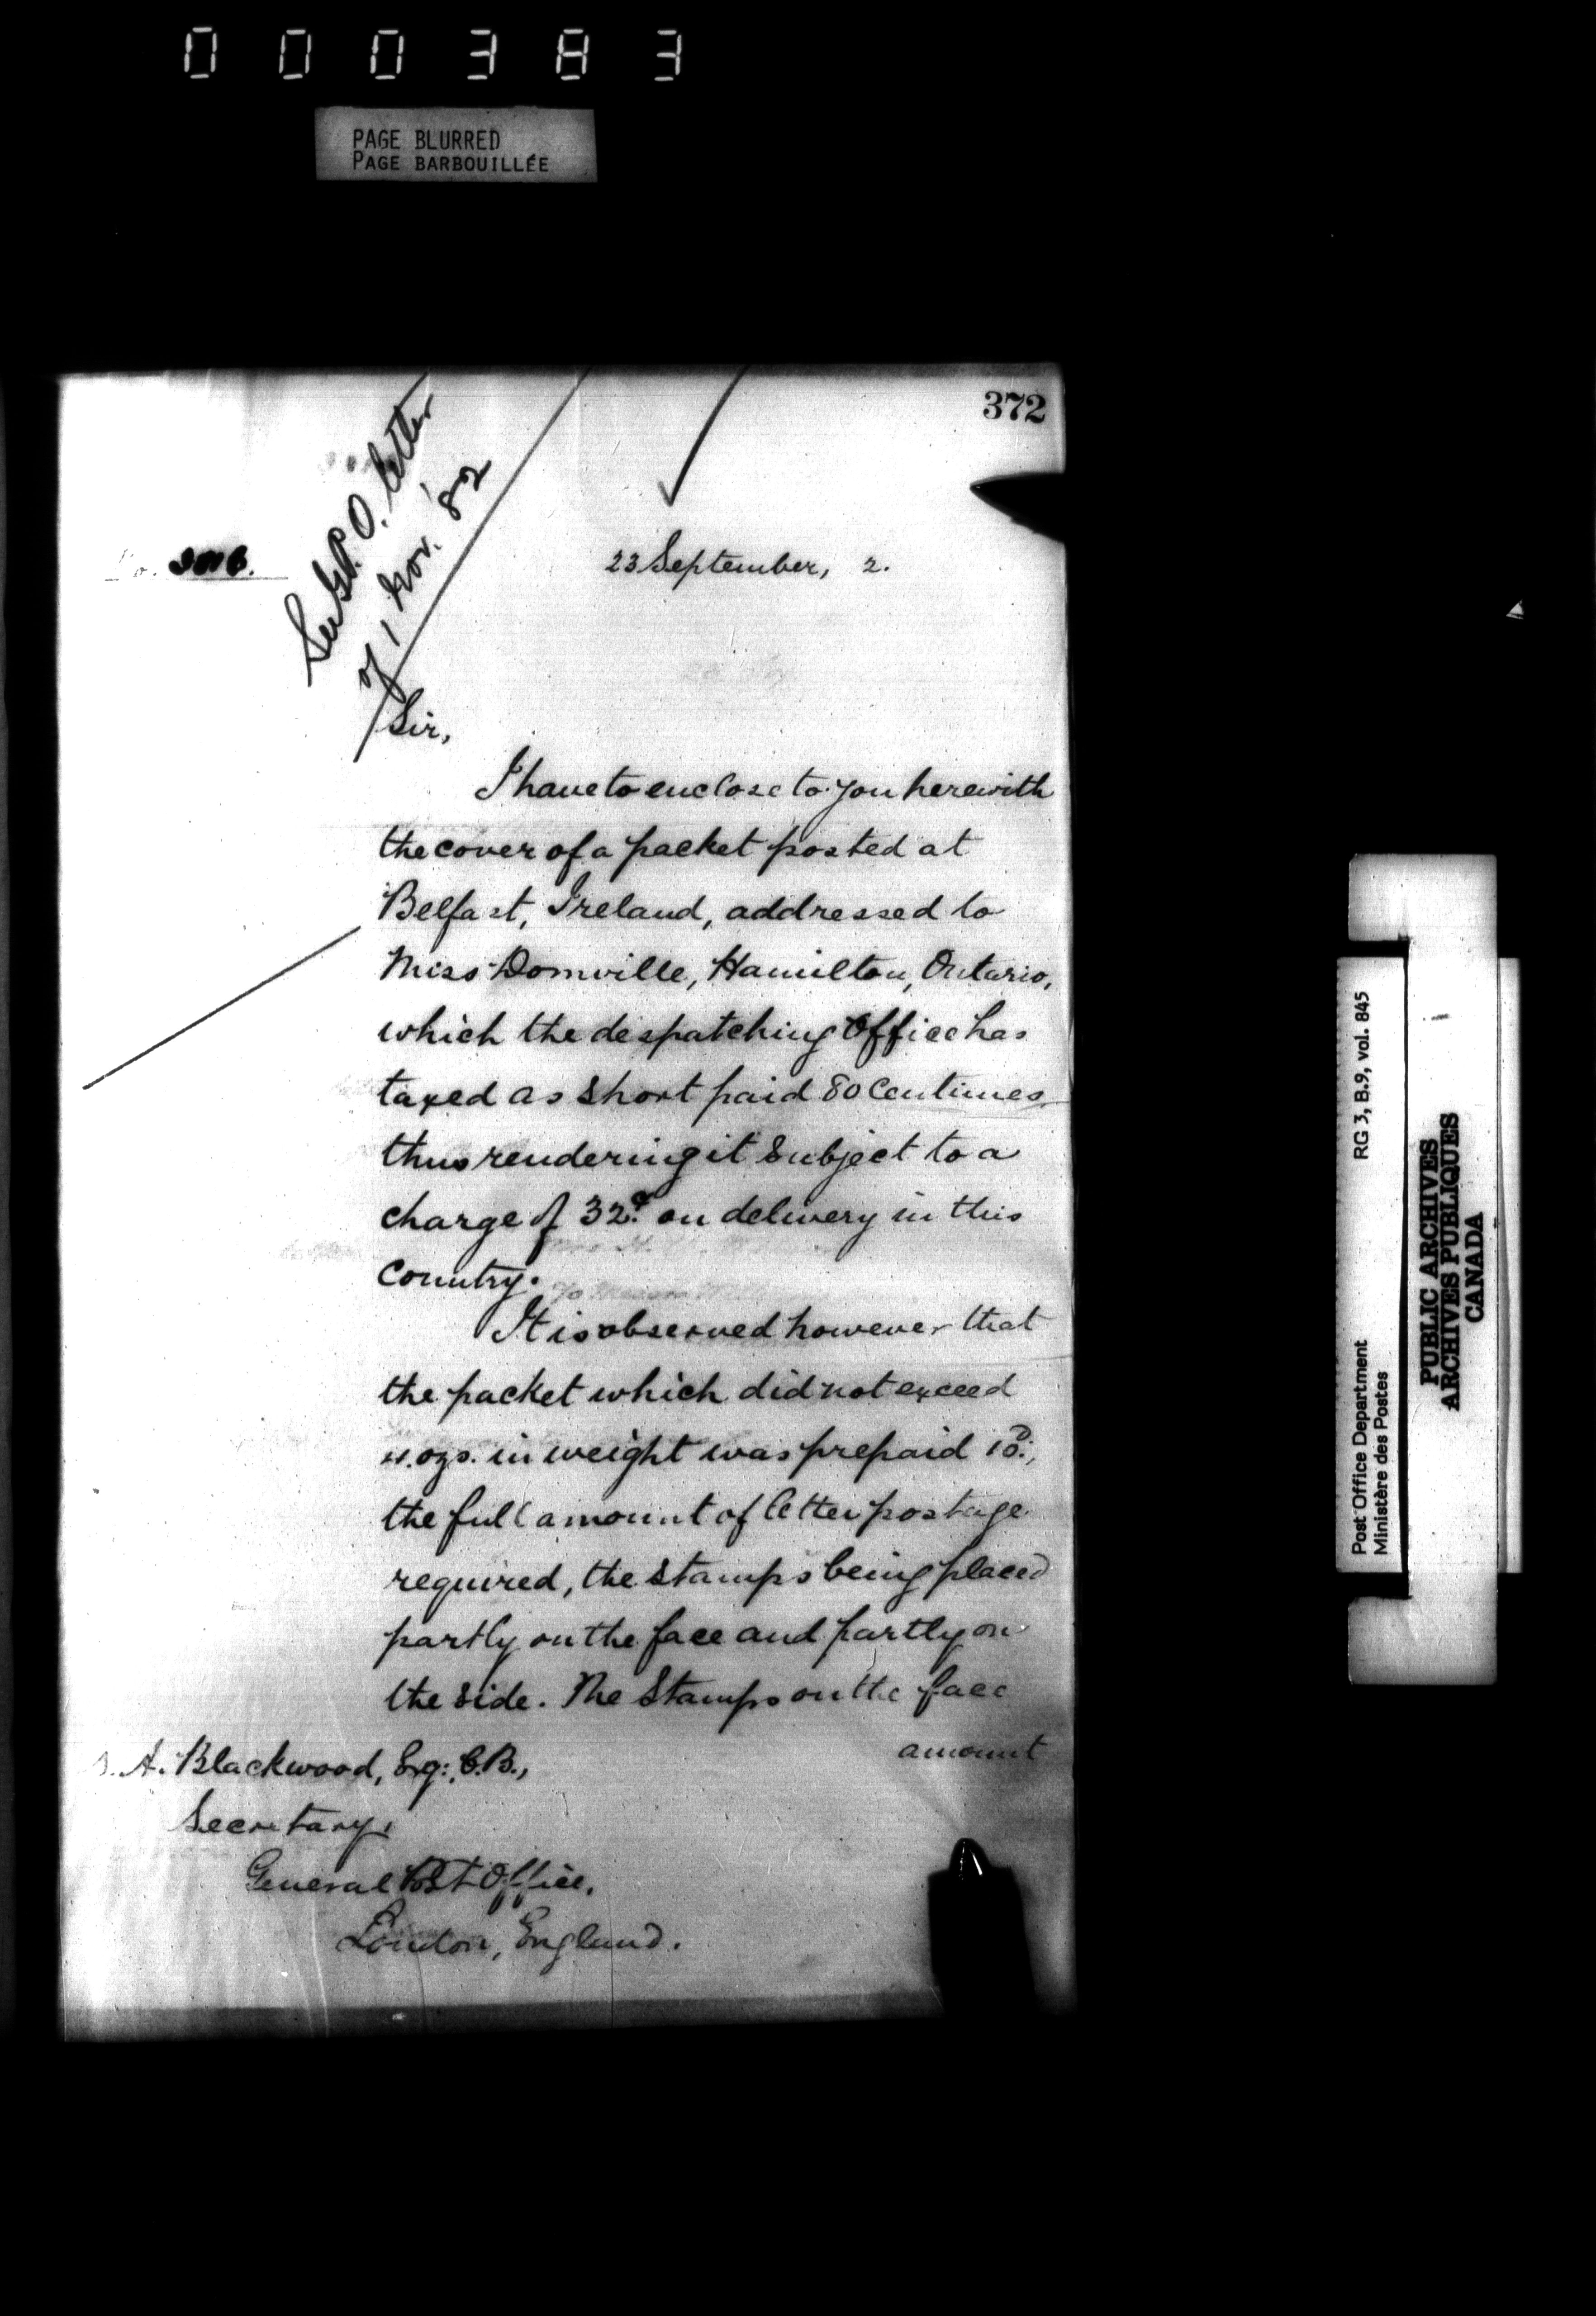 000383
PAGE BLURRED
PAGE BARBOUILLÉE
372
See G.P.O. letter
of 1 Nov. '82
No. 3016.
23 September, 2.
Sir,
I have to enclose to you herewith
the cover of a packet posted at
Belfast, Ireland, addressed to
Miss Domville, Hamilton, Ontario,
which the despatching Office has
taxed as short paid 80 Centimes
thus rendering it subject to a
charge of 32c. on delivery in this
Country.
It is observed however that
the packet which did not exceed
4. ozs. in weight was prepaid
the full amount of letter postage
required, the stamps being placed
partly on the face and partly on
the side. The Stamps on the face
amount
S. A. Blackwood, Esq:, C.B.,
Secretary,
General Post Office,
London, England.
Post Office Department
Ministère des Postes
RG 3, B.9, vol. 845
PUBLIC ARCHIVES
ARCHIVES PUBLIQUES
CANADA